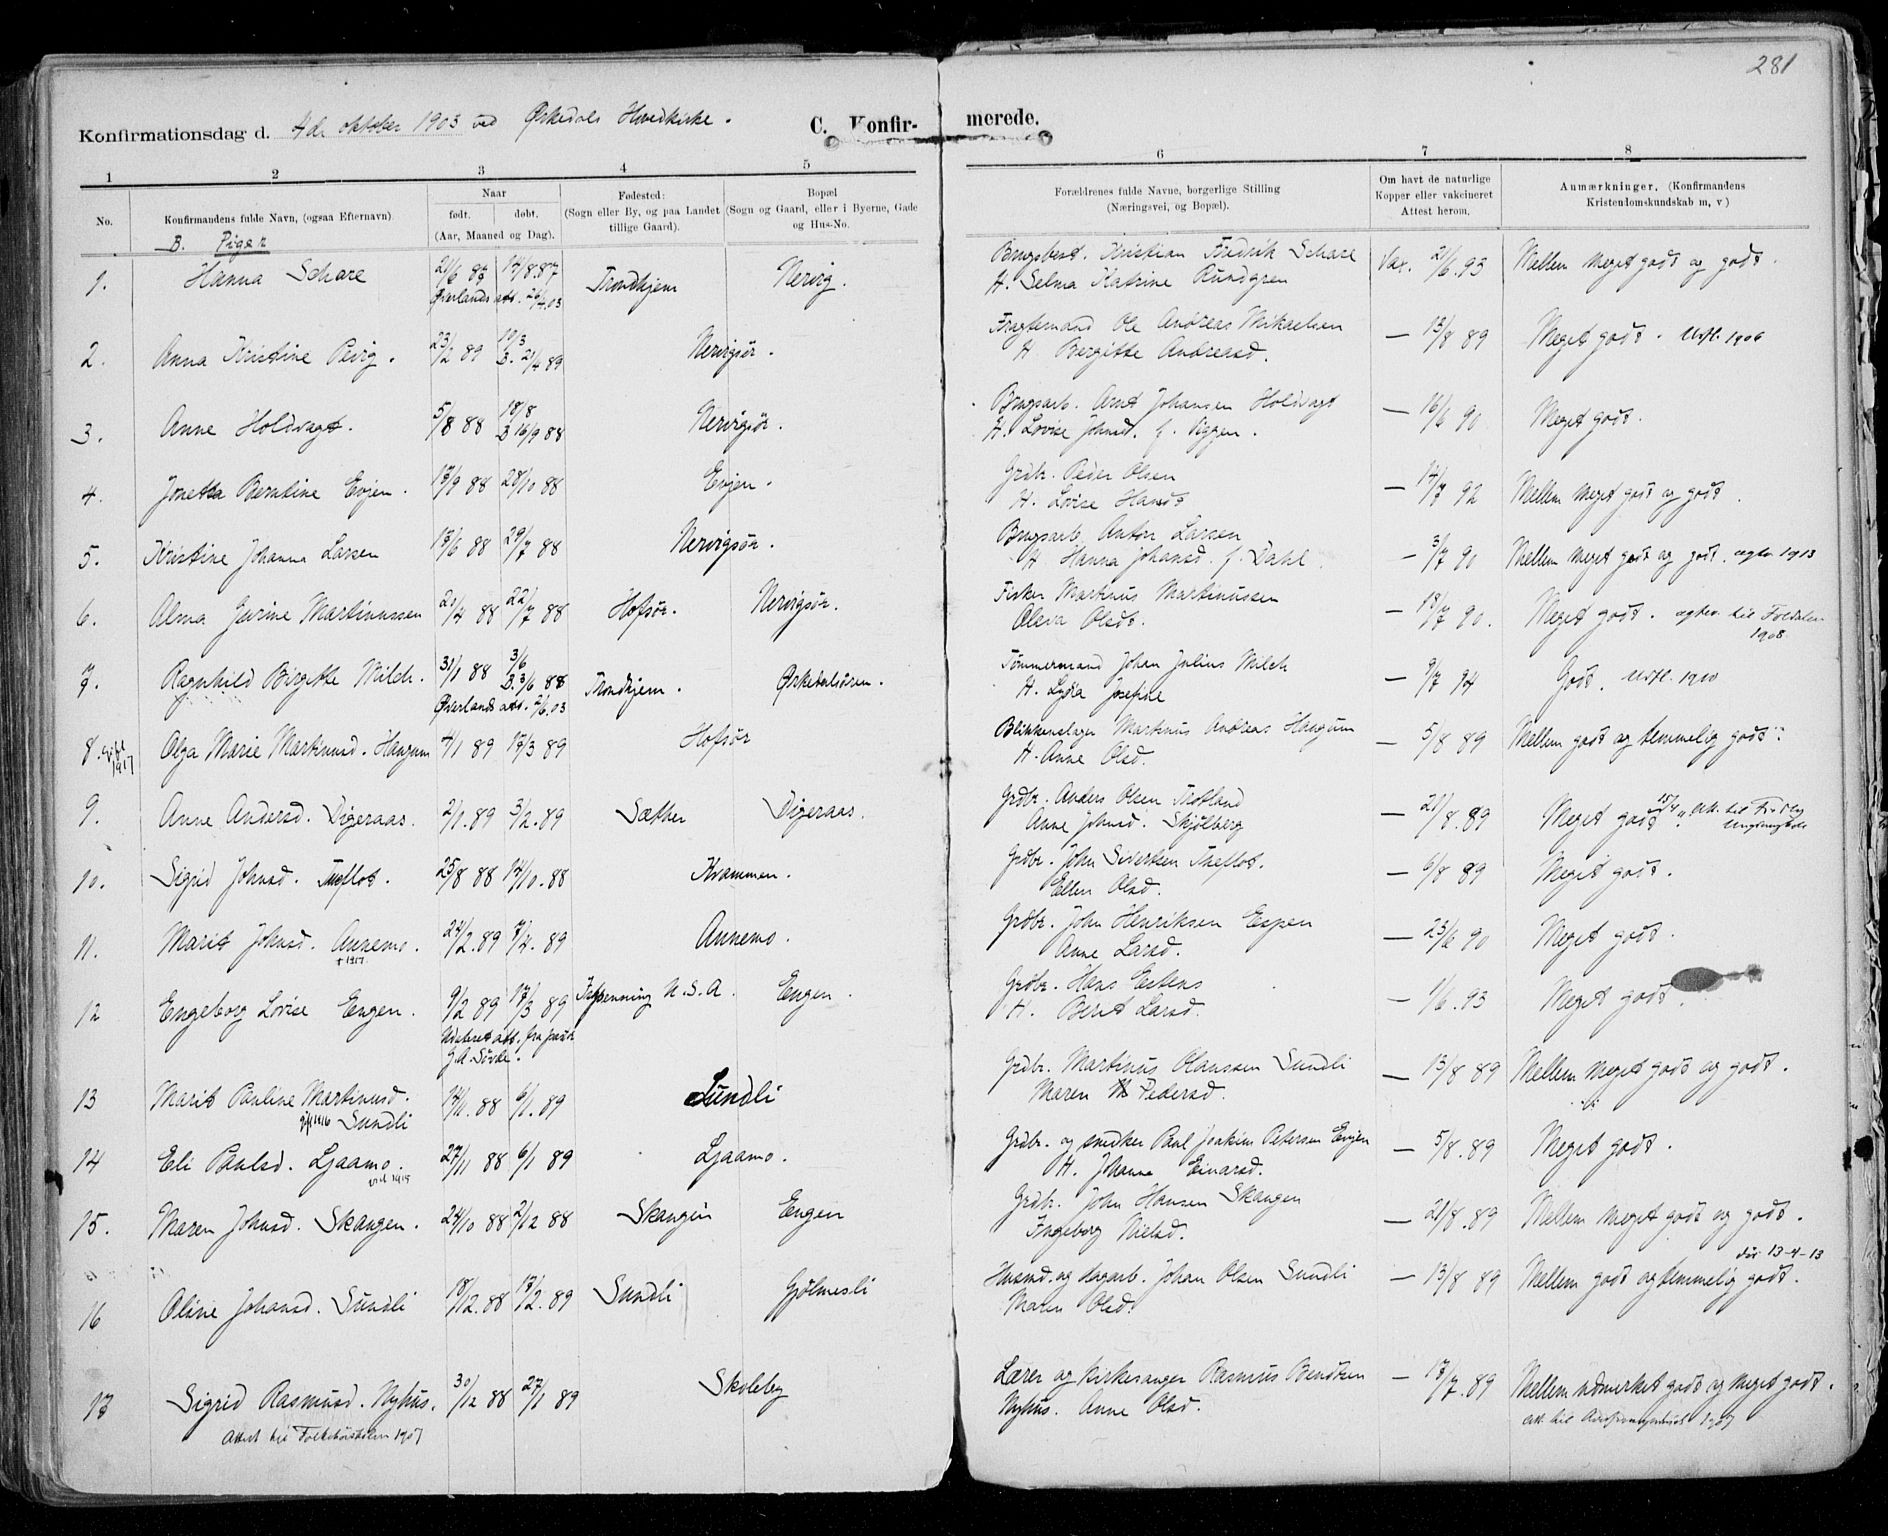 281
Konfirmationsdag d. 4de oktober 1903 ved Ørkedals Hovedkirke.
C. Konfirmerede.
1 2 3 4 5 6 7 8
No.
Konfirmandens fulde Navn, (ogsaa Efternavn)
Naar
født. døbt.
(Aar, Maaned og Dag).
Fødested:
(Sogn eller By, og paa Landet
tillige Gaard).
Bopæl
(Sogn og Gaard, eller i Byerne, Gade
og Hus-No.
Forældrenes fulde Navne, borgerlige Stilling
(Næringsvei, og Bopæl).
Om havt de naturlige
Kopper eller vakcineret
Attest herom.
Anmærkninger. (Konfirmandens
Kristendomskundskab m, v)
B. Piger
1. Hanna Schare 21/6 87 14/8.87 Trondhjem Nervig. Brugsbest. Kristian Fredrik Schare Vax. 2/6.93 Mellem meget godt og godt.
att. 26/4.03 H. Selma Katrine Rundgren
2. Anna Kristine Pevig. 23/2 89 10/3 Nervigsør. Fragtemand Ole Andreas Mikaelsen — 13/8 89 Meget godt. Utfl. 1906
B. 21/4 89 H Bergitte Andreasd.
3. Anne Holdvagt. 5/8 88 18/8 Nervigsør. Brugsarb. Arnt Johansen Holdvagt — 16/6 90 Meget godt.
B 16/9 88 H. Lovise Johnsd. f. Viggen.
4. Jonetta Berntine Evjen. 17/9 88 28/10 88 Evjen. Grdbr. Peder Olsen — 14/7 92 Mellem meget godt og godt.
H. Lovise Hansd
5. Kristine Johanna Larsen 13/6 88 29/7 88 Nervigsør. Brugsarb. Anton Larsen — 3/7 90 Mellem meget godt og godt. 1913
H Hanna Johansd. f. Dahl.
6. Alma Martinussen 4 88 22/7 88 Hofsør. Nervigsør. Fisker Martinus Martinussen — 18/7 90. Meget godt. til Foldalen
Oleva Olsdt. 1908
7. Ragnhild Birgitte Milch. 31/1 88 3/6 Trondhjem. Ørkedalsøren. Tømmermand Johan Julius Milch — 9/7 94 Godt. Utfl. 1910
B. 3/6 88 H. Lydia Josefine
att. 2/6.03
8. gift 1917 Olga Marie Martinusd. Haugum 4/1 89 17/3 89 Hofsør Blikkenslager Martinus Andreas Haugum — 5/8 89 Mellem godt og temmelig godt.
H. Anne Olsd.
9. Anne Andersd. Digeraas. 2/1.89 3/2.89 Sæther Digeraas. Grdbr. Anders Olsen — 21/8.89 Meget godt. Att. til
Anne Johnsd. Skjølberg
10. Sigrid Johnsd. 25/8 88 14/10.88 Kvammen. Grdbr. John Sivertsen — 6/8 89 Meget godt.
Ellen Olsd.
11. Marit Johnsd. Annemo. 24/2.89 7/4.89 Annemo. Grdbr. John Henriksen Espen — 23/6 90 Meget godt.
† 1917. Anne Larsd.
12 Engeborg Lovise Engen. 9/2 89 17/3 89 N.S.A. Engen. Grdbr. Hans Estens — 1/6.93 Meget godt.
H. Beret Larsd.
att. fra
13 Marit Pauline Martinusd. 14/11.88 6/1.89 Sundli Grdbr. Martinus Olaussen Sundli — 13/8 89 Mellem meget godt og godt.
gift 1916 Sundli Maren Pedersd.
14 Eli Paulsd. Ljaamo. 27/11 88 6/1 89 Ljaamo. Grdbr. og snedker Paul Joakim Petersen Evjen — 5/8.89 Meget godt.
H. Johanna Einarsd.
15. Maren Johnsd. Skangen. 24/10 88 2/12 88 Skangen Engen Grdbr. John Hansen Skangen — 21/8.89 Mellem meget godt og godt.
Ingeborg Nielsd.
død 13-4-13
16 Oline Johansd. Sundli 18/12.88 17/2.89 Sundli Gjølmesli Husmd. og dagarb. Johan Olsen Sundli — 13/8 89 Mellem godt og temmelig godt.
Maren Olsd.
17 Sigrid Rasmusd. Nyhus. 30/12 88 27/1 89 Skoleby Lærer og kirkesanger Rasmus Bendtsen — 17/7.89 Mellem udmerket godt og meget godt.
Attest til Folkehøiskolen 1907 Nyhus. Anne Olsd. att. til 1907